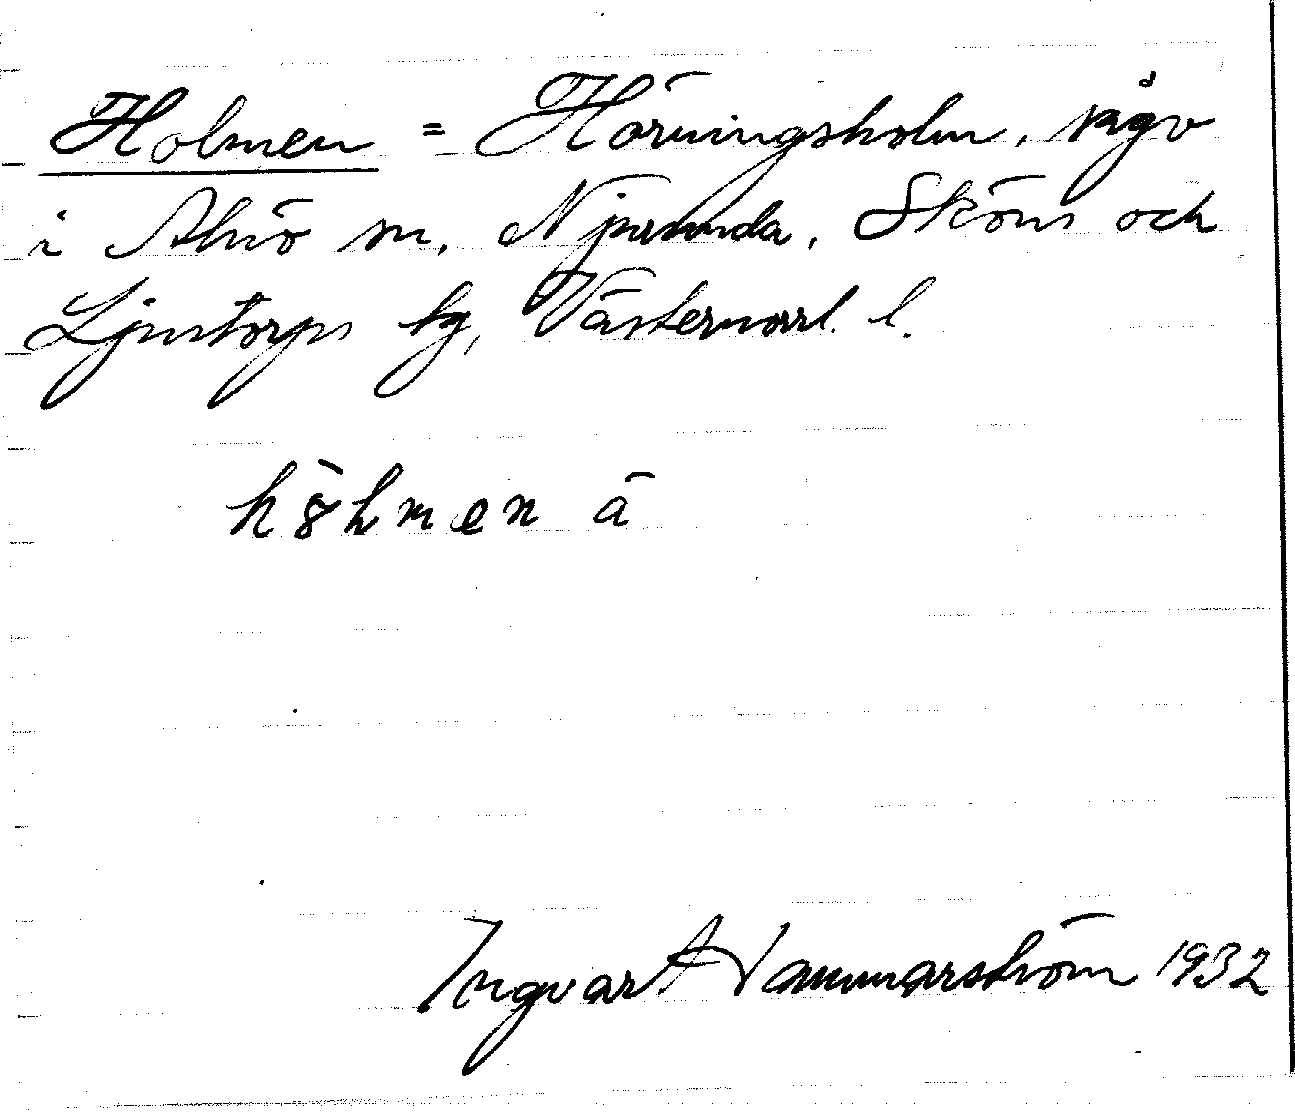 Holmen = Hörningsholm, sågv
i Alnö sn, Njurunda, Sköns och
Ljustorps tg, Västernorrl. l.
ä
Ingvar Hammarström 1932